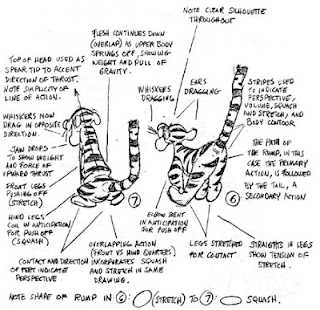 NOTE CLEAR SILHOUETTE
THROUGHOUT
FLESH CONTINUES DOWN
(OVERLAP) AS UPPER BODY
SPRINGS OFF, SHOWING
WEIGHT AND PULL OF
GRAVITY.
TOP OF HEAD USED AS
SPEAR TIP TO ACCENT
DIRECTION OF THRUST.
NOTE SIMPLICITY OF
LINE OF ACTION.
WHISKERS NOW
DRAG IN OPPOSITE
DIRECTION.
JAW DROPS
TO SHOW WEIGHT
AND FORCE OF
UPWARD THRUST
FRONT LEGS
PUSHING OFF
(STRETCH)
HIND LEGS
COIL IN ANTICIPATION
FOR PUSH OFF
(SQUASH)
CONTACT AND DIRECTION
OF FEET INDICATE
PERSPECTIVE
OVERLAPPING ACTION
(FRONT VS HIND QUARTERS)
INCORPORATES SQUASH
AND STRETCH IN SAME
DRAWING.
7
WHISKERS
DRAGGING
EARS
DRAGGING
STRIPES USED
TO INDICATE
PERSPECTIVE,
VOLUME, SQUASH
AND STRETCH, AND
BODY CONTOUR
THE PATH OF
THE RUMP, IN THIS
CASE THE PRIMARY
ACTION, IS FOLLOWED
BY THE TAIL, A
SECONDARY ACTION
6
ELBOW BENT
IN ANTICIPATION
FOR PUSH OFF
LEGS STRETCHED
FOR CONTACT
STRAIGHTS IN LEGS
SHOW TENSION OF
STRETCH.
NOTE SHAPE OF RUMP IN 6: (STRETCH) TO 7: SQUASH.